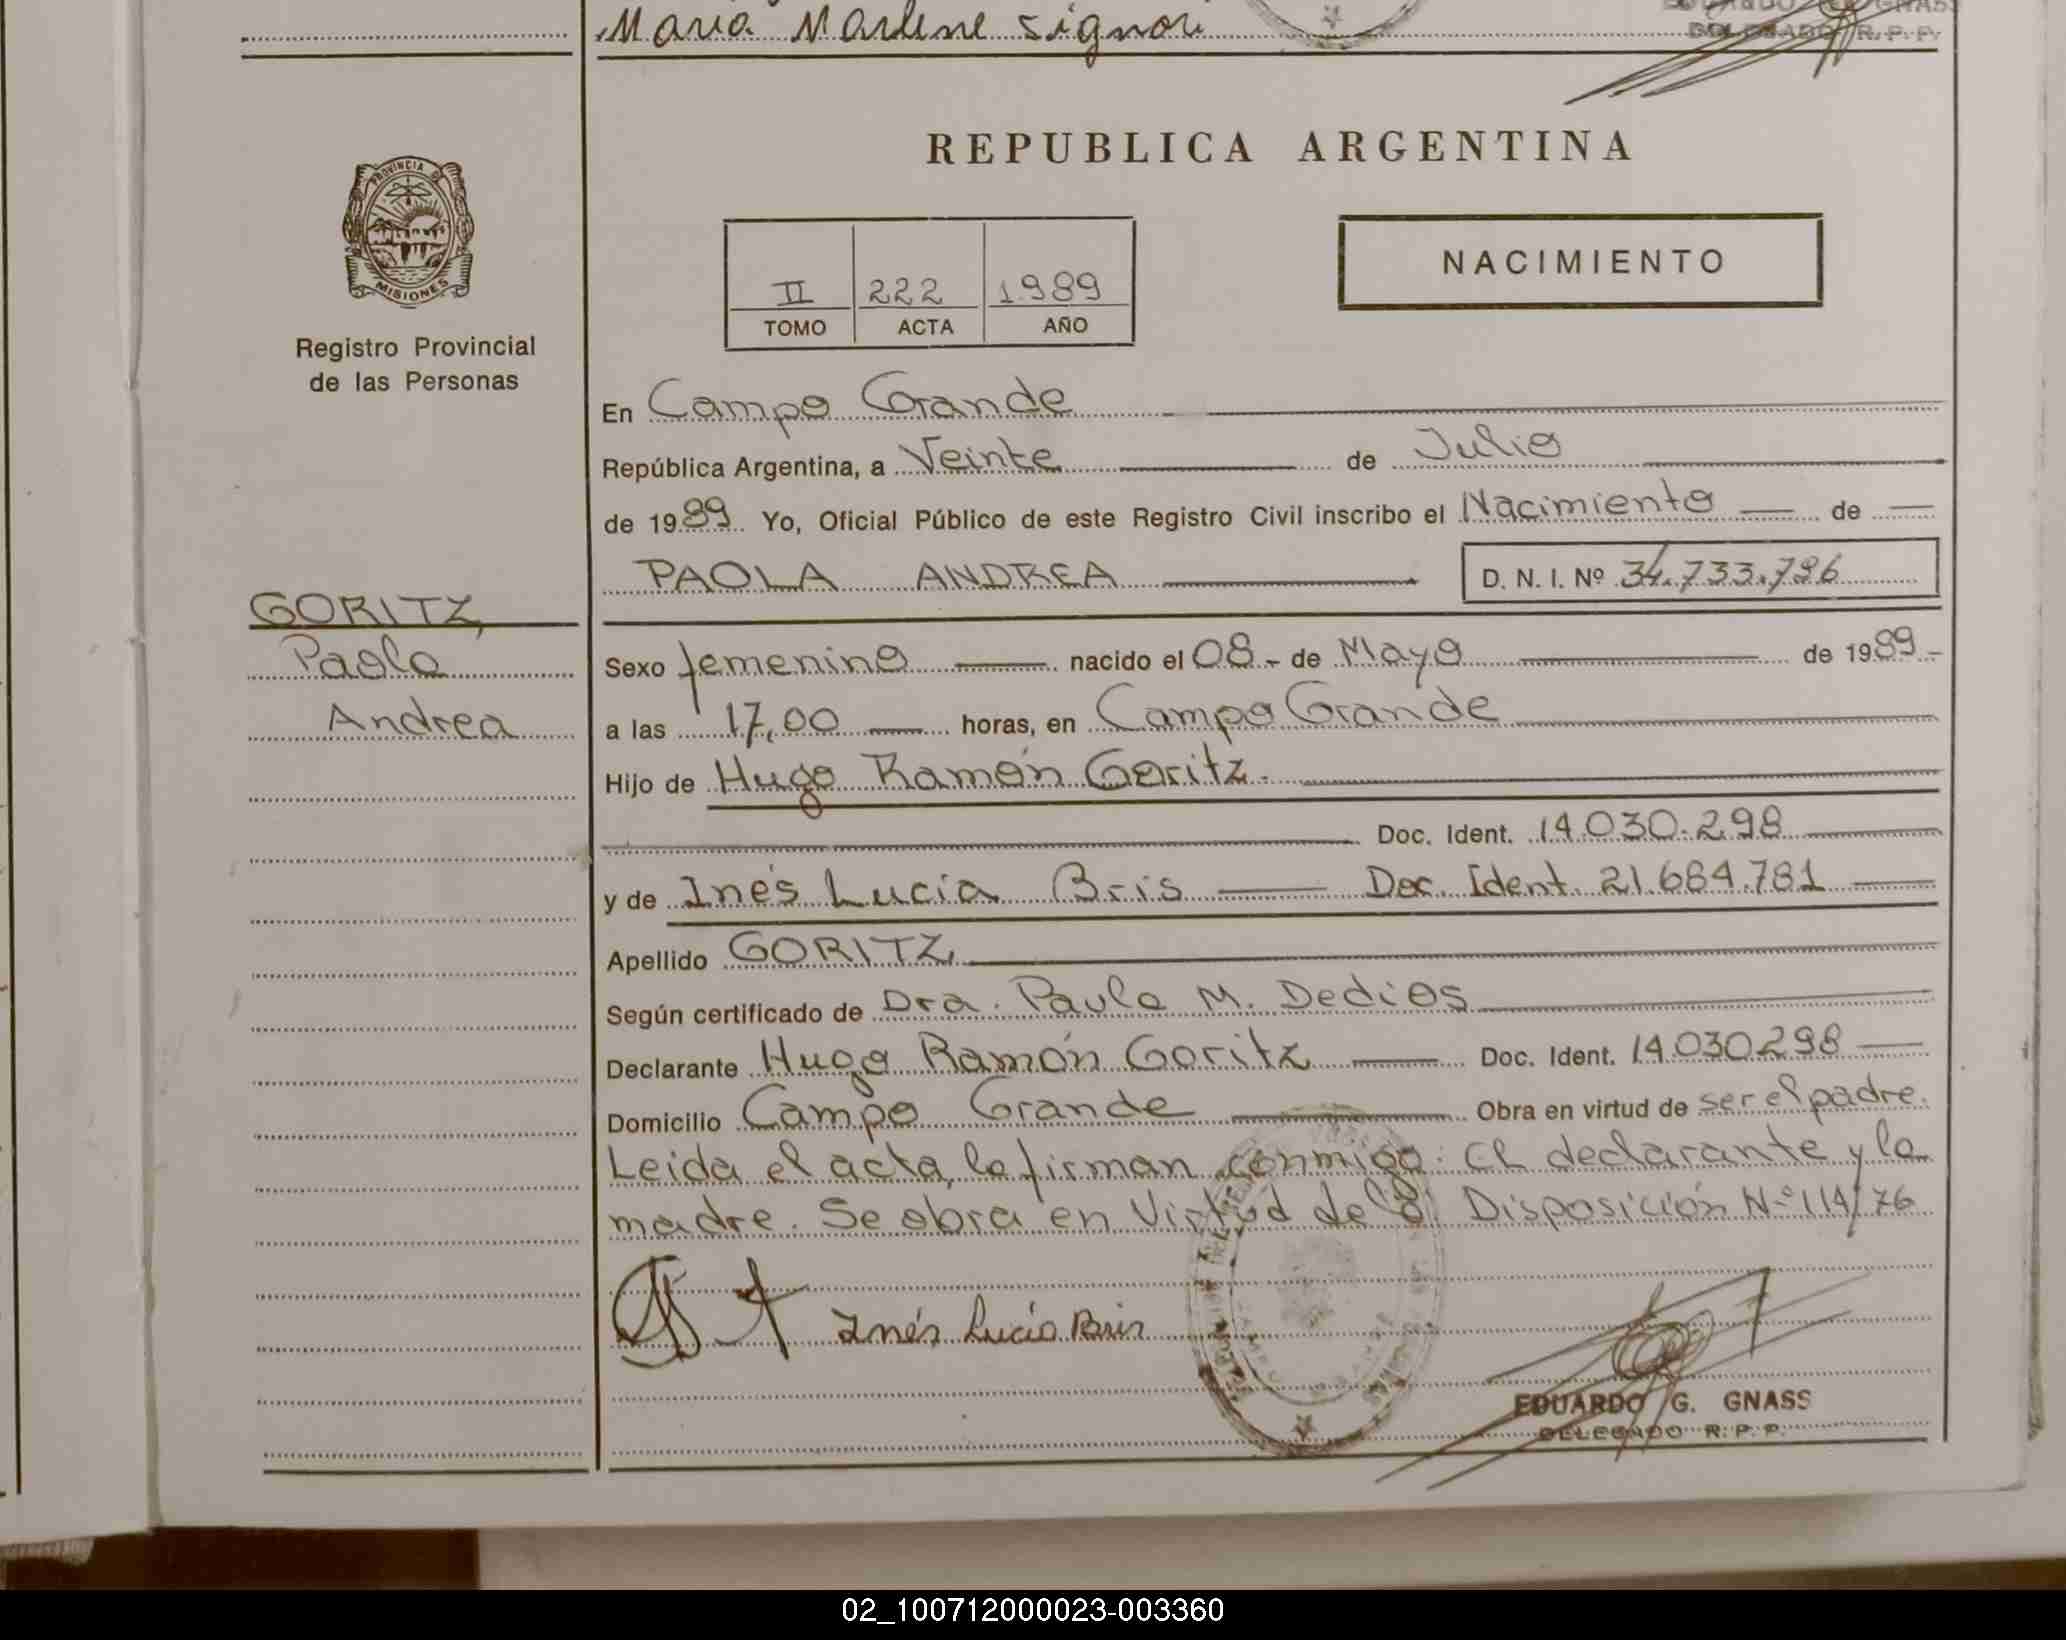 Maria Marlene Signori
EDUARDO G. GNASS
DELEGADO R. P. P.
PROVINCIA DE
MISIONES
Registro Provincial
de las Personas
REPUBLICA ARGENTINA
II 222 1989
TOMO ACTA AÑO
NACIMIENTO
En Campo Grande
República Argentina, a Veinte de Julio
de 1989 Yo, Oficial Público de este Registro Civil inscribo el Nacimiento de
PAOLA ANDREA D. N. I. Nº 34.733.796
GORITZ,
Paola
Andrea
Sexo femenino nacido el 08.- de Mayo de 1989.-
a las 17,00 horas, en Campo Grande
Hijo de Hugo Ramón Goritz.
Doc. Ident. 14.030.298
y de Inés Lucia Bris Doc. Ident. 21.684.781
Apellido GORITZ,
Según certificado de Dra. Paula M. Dedios
Declarante Hugo Ramón Goritz Doc. Ident. 14.030.298
Domicilio Campo Grande Obra en virtud de ser el padre.
Leida el acta, la firman conmigo: El declarante y la
madre. Se obra en Virtud de la Disposición Nº 114/76
Inés Lucia Bris
EDUARDO G. GNASS
DELEGADO R. P. P.
02_100712000023-003360